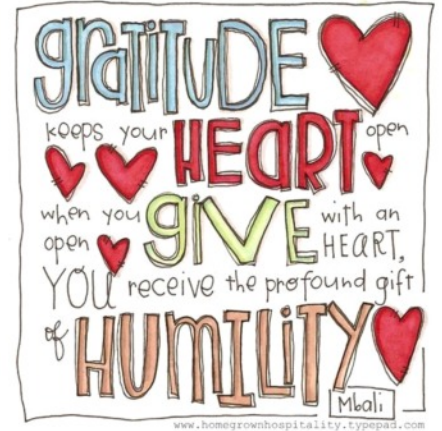 gratitude
keeps your HEART open
when you give with an
open HEART,
YOU receive the profound gift
of HUMILITY
Mbali
www.homegrownhospitality.typepad.com